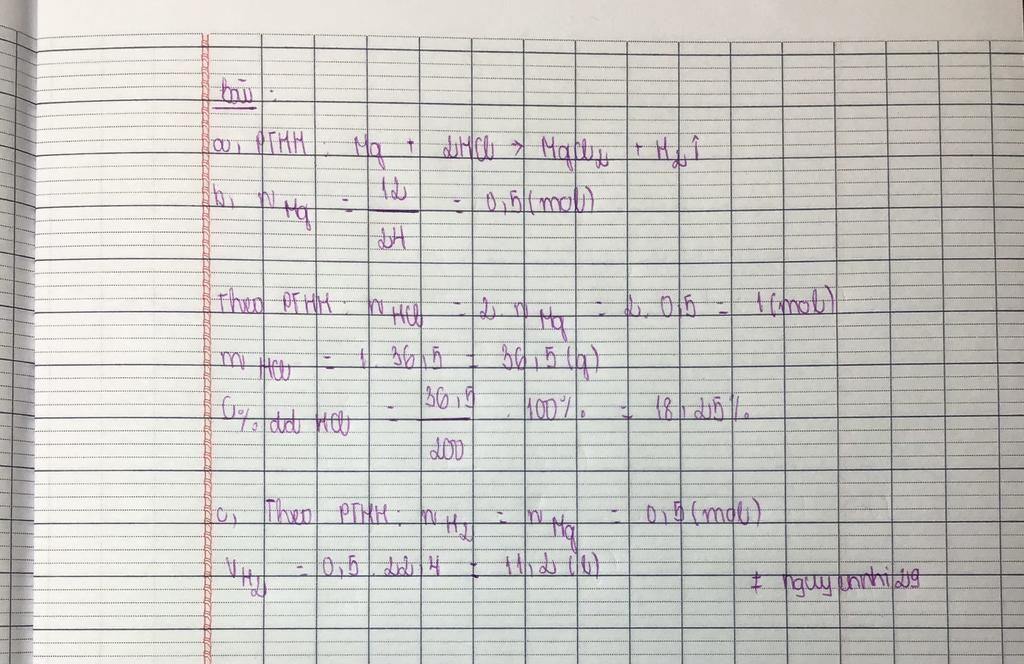 bài :
a, PTHH : Mg + 2HCl → MgCl₂ + H₂↑
b, nMg = 12/24 = 0,5 (mol)
Theo PTHH : nHCl = 2. nMg = 2. 0,5 = 1 (mol)
mHCl = 1. 36,5 = 36,5 (g)
C% dd HCl = 36,5/200 . 100% = 18,25%
c, Theo PTHH : nH₂ = nMg = 0,5 (mol)
VH₂ = 0,5. 22,4 = 11,2 (l)